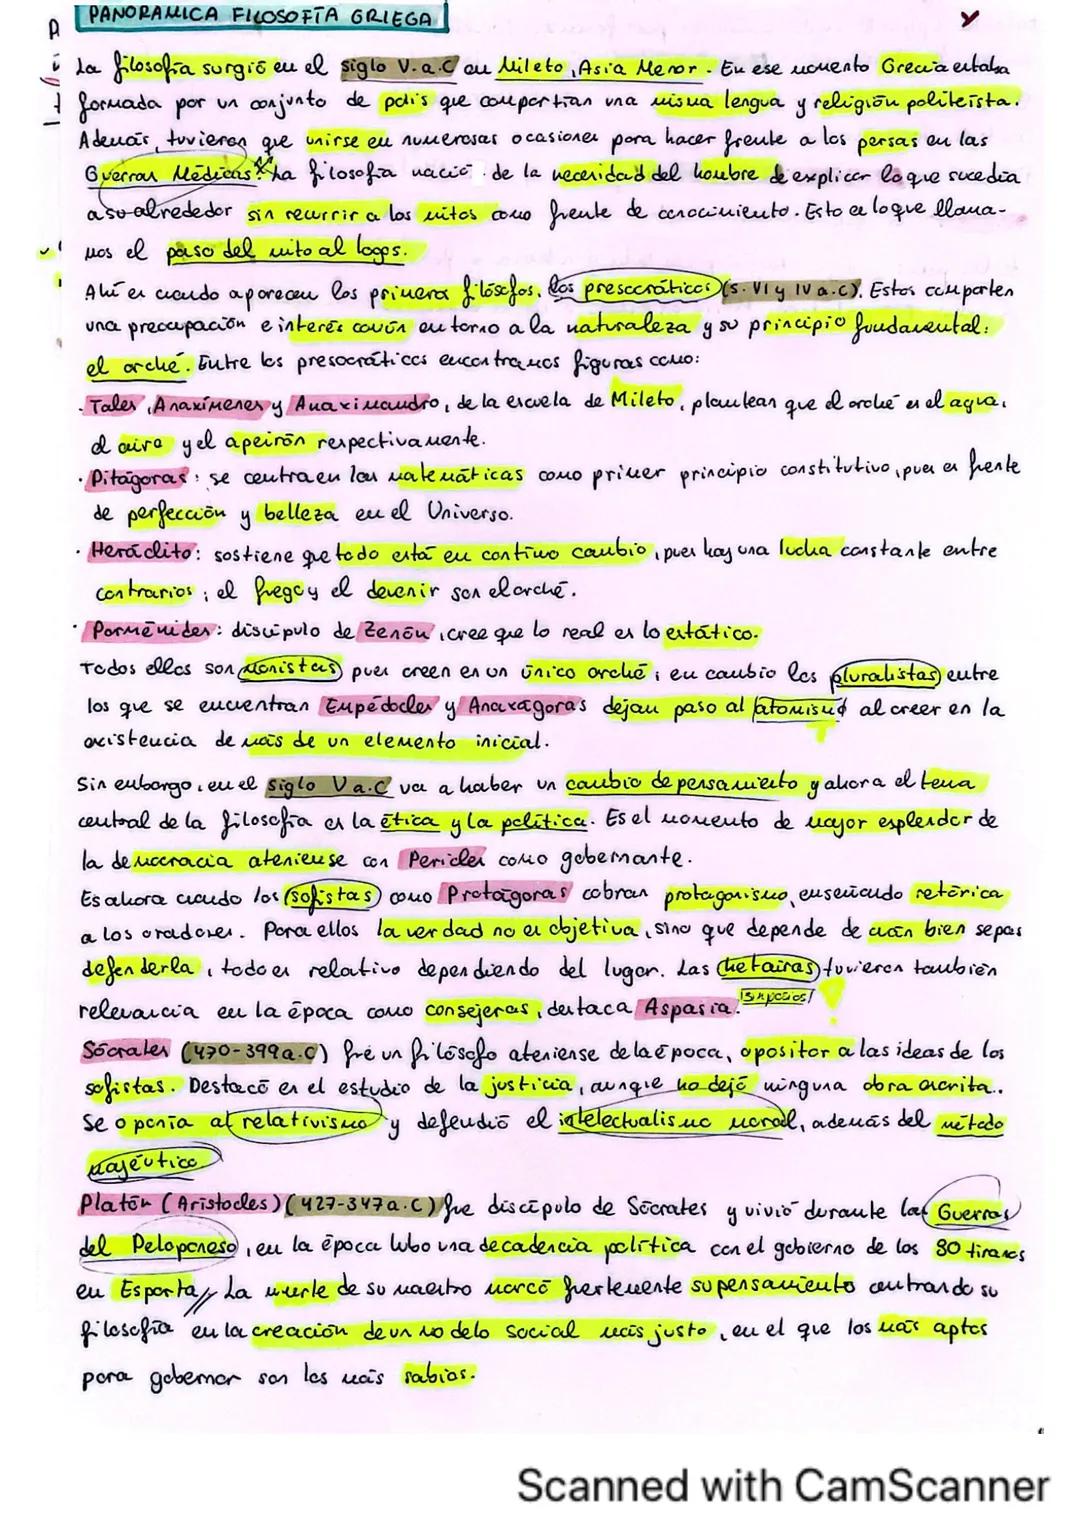 PANORAMICA FILOSOFÍA GRIEGA
La filosofía surgió en el siglo V.a.C en Mileto, Asia Menor. En ese momento Grecia estaba
formada por un conjunto de polis que compartían una misma lengua y religión politeísta.
Además, tuvieron que unirse en numerosas ocasiones para hacer frente a los persas en las
Guerras Médicas. La filosofía nació de la necesidad del hombre de explicar lo que sucedía
a su alrededor sin recurrir a los mitos como fuente de conocimiento. Esto es lo que llama-
mos el paso del mito al logos.
Ahí es cuando aparecen los primeros filósofos, los presocráticos (s. VI y IV a.C). Estos comparten
una preocupación e interés común en torno a la naturaleza y su principio fundamental:
el arché. Entre los presocráticos encontramos figuras como:
· Tales, Anaxímenes y Anaximandro, de la escuela de Mileto, plantean que el arché es el agua,
el aire y el apeirón respectivamente.
· Pitágoras: se centra en las matemáticas como primer principio constitutivo, pues es fuente
de perfección y belleza en el Universo.
· Heráclito: sostiene que todo está en continuo cambio, pues hay una lucha constante entre
contrarios; el fuego y el devenir son el arché.
· Parménides: discípulo de Zenón, cree que lo real es lo estático.
Todos ellos son monistas pues creen en un único arché; en cambio los pluralistas entre
los que se encuentran Empédocles y Anaxágoras dejan paso al atomismo al creer en la
existencia de más de un elemento inicial.
Sin embargo, en el siglo V a.C va a haber un cambio de pensamiento y ahora el tema
central de la filosofía es la ética y la política. Es el momento de mayor esplendor de
la democracia ateniense con Pericles como gobernante.
Es ahora cuando los sofistas como Protágoras cobran protagonismo, enseñando retórica
a los oradores. Para ellos la verdad no es objetiva, sino que depende de cuán bien sepas
defenderla, todo es relativo dependiendo del lugar. Las hetairas tuvieron también
relevancia en la época como consejeras, destaca Aspasia.
Sócrates (470-399a.C) fue un filósofo ateniense de la época, opositor a las ideas de los
sofistas. Destacó en el estudio de la justicia, aunque no dejó ninguna obra escrita..
Se oponía al relativismo y defendió el intelectualismo moral, además del método
mayéutico
Platón (Aristocles) (427-347a.C) fue discípulo de Sócrates y vivió durante las Guerras
del Peloponeso, en la época hubo una decadencia política con el gobierno de los 30 tiranos
en Esparta// La muerte de su maestro marcó fuertemente su pensamiento centrando su
filosofía en la creación de un modelo social más justo, en el que los más aptos
para gobernar son los más sabios.
Scanned with CamScanner